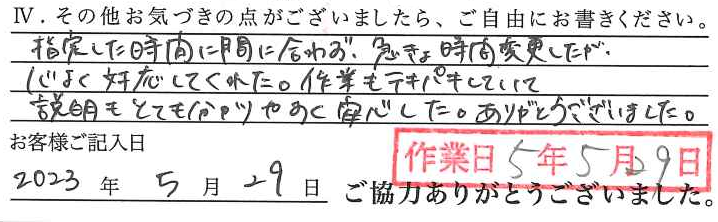 Ⅳ．その他お気づきの点がございましたら、ご自由にお書きください。
指定した時間に間に合わず、急きょ時間変更したが、
心よく対応してくれた。作業もテキパキしていて
説明もとても分かりやすく安心した。ありがとうございました。
お客様ご記入日
作業日 5年5月29日
2023年 5月29日 ご協力ありがとうございました。